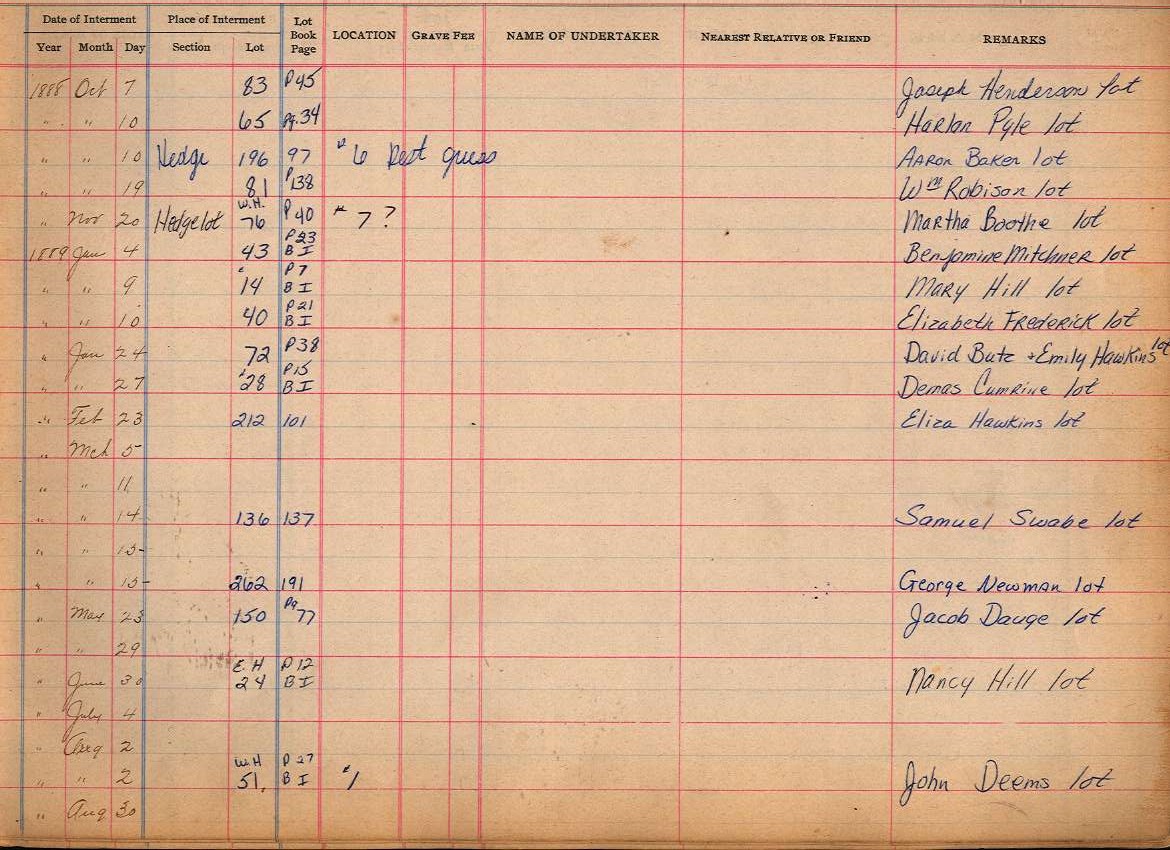 Date of Interment Place of Interment Lot Book Page LOCATION GRAVE FEE NAME OF UNDERTAKER NEAREST RELATIVE OR FRIEND REMARKS
Year Month Day Section Lot
1888 Oct 7 83 P45 Joseph Henderson lot
" " 10 65 Pg. 34 Harlan Pyle lot
" " 10 Hedge 196 97 #6 Best guess Aaron Baker lot
" " 19 81 P138 Wm Robison lot
" Nov 20 Hedge lot W.H. 76 P40 #7? Martha Boothe lot
1889 Jan 4 43 P23 B I Benjamine Mitchner lot
" " 9 14 P7 B I Mary Hill lot
" " 10 40 P21 B I Elizabeth Frederick lot
" Jan 24 72 P38 David Butz + Emily Hawkins lot
" " 27 28 P15 B I Demas Cumrine lot
" Feb 23 212 101 Eliza Hawkins lot
" Mch 5
" " 11
" " 14 136 137 Samuel Swabe lot
" " 15
" " 15 262 191 George Newman lot
" May 23 150 Pg 77 Jacob Dauge lot
" " 29
" June 30 E.H 24 P12 B I Nancy Hill lot
" July 4
" Aug 2
" " 2 W.H 51. P27 B I #1 John Deems lot
" Aug 30